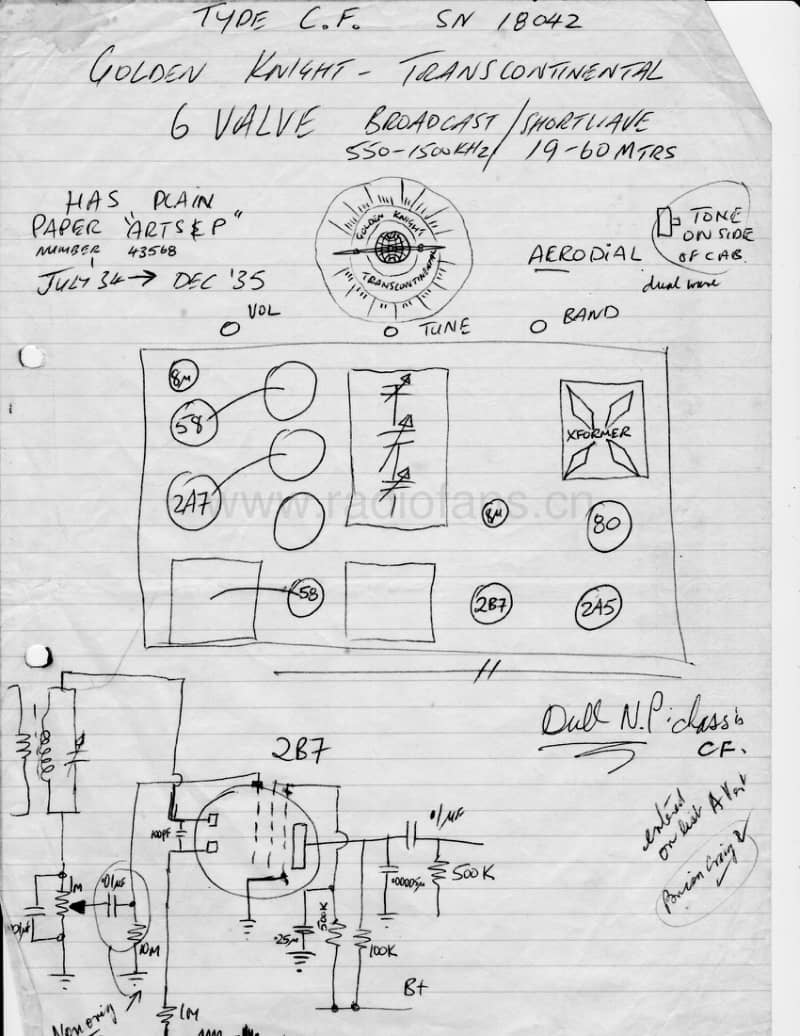 TYPE C.F. SN 18042
GOLDEN KNIGHT - TRANSCONTINENTAL
6 VALVE BROADCAST/SHORTWAVE
550-1500KHZ/ 19-60 MTRS
HAS PLAIN
PAPER "ARTS & P"
NUMBER 43568
JULY '34 → DEC '35
GOLDEN KNIGHT
TRANSCONTINENTAL
AERODIAL
TONE
ON SIDE
OF CAB.
dual wave
VOL
TUNE
BAND
8µ
58
2A7
XFORMER
www.radiofans.cn
8µ
80
58
2B7
2A5
Dull N.P. chassis
CF.
2B7
100PF
.1µF
.00005µ
500K
1M
.01µF
10M
.25µ
500K
100K
B+
1M
Non orig
entered
on list A
Brian Craig